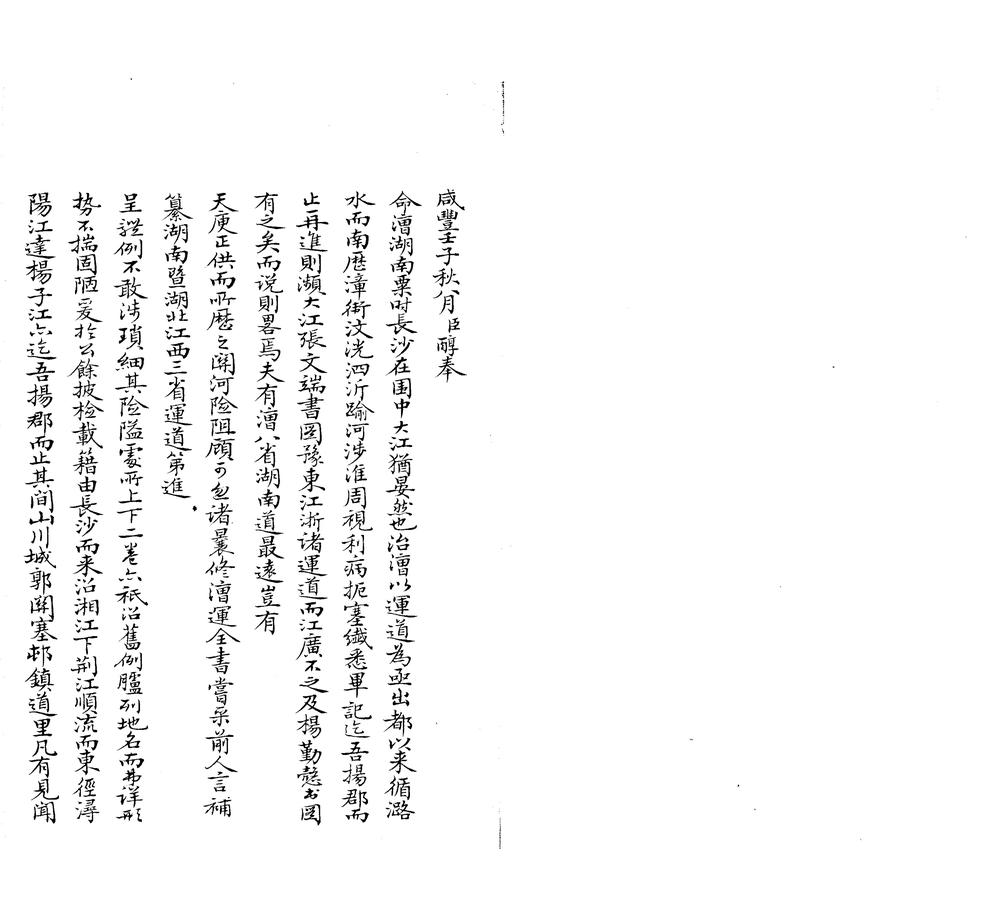 咸豐壬子秋八月臣醇奉
命漕湖南粟时長沙在围中大江猶晏然也治漕以運道為亟出都以来循潞
水而南歷漳衛汶洸泗沂踰河涉淮周視利病扼塞纎悉畢記迄吾揚郡而
止再進則瀕大江張文端書圖豫東江浙诸運道而江廣不之及楊勤愨书圖
有之矣而说則畧焉夫有漕八省湖南道最遠豈有
天庾正供而所歷之關河险阻顾可忽诸曩修漕運全書嘗采前人言補
纂湖南暨湖北江西三省運道第進
呈體例不敢涉瑣細其险隘處所上下二卷亦祇沿舊例臚列地名而弗详形
势不揣固陋爰於公餘披检載籍由長沙而来沿湘江下荆江順流而東徑潯
陽江達楊子江亦迄吾揚郡而止其間山川城郭関塞邨鎮道里凡有見聞